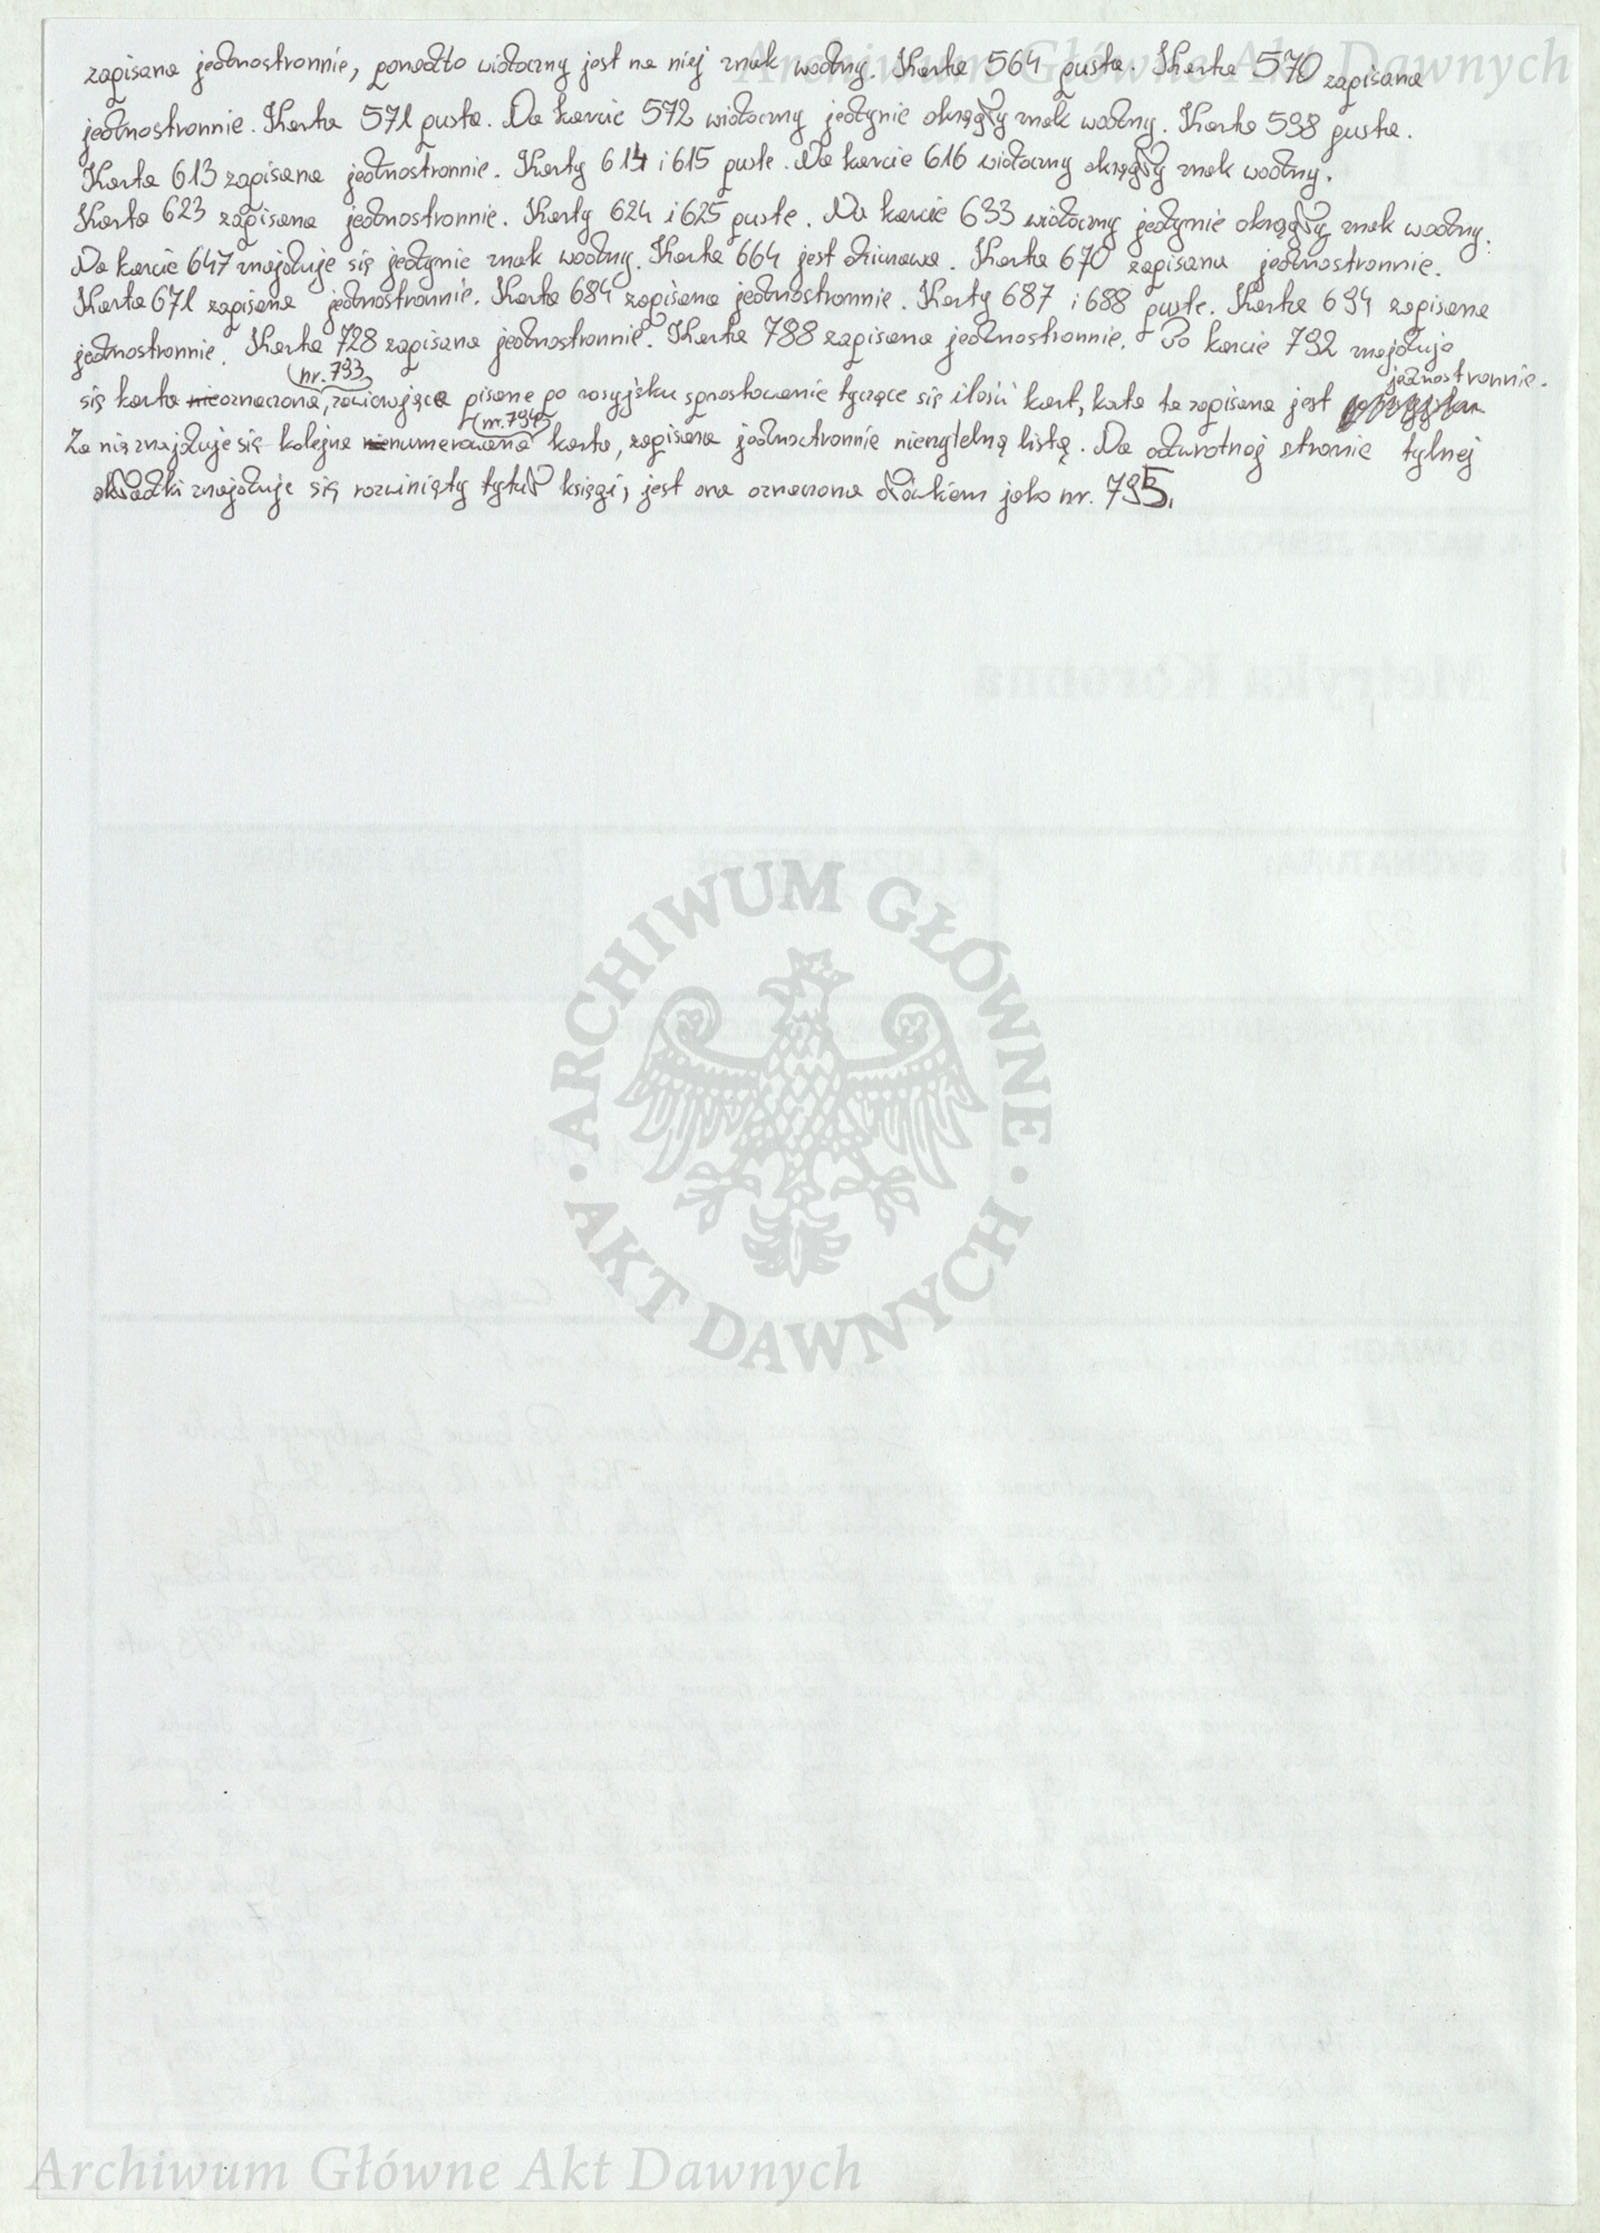 Archiwum Główne Akt Dawnych
zapisana jednostronnie, ponadto widoczny jest na niej znak wodny. Karta 564 pusta. Karta 570 zapisana
jednostronnie. Karta 571 pusta. Na karcie 572 widoczny jedynie okrągły znak wodny. Karta 598 pusta.
Karta 613 zapisana jednostronnie. Karty 614 i 615 puste. Na karcie 616 widoczny okrągły znak wodny.
Karta 623 zapisana jednostronnie. Karty 624 i 625 puste. Na karcie 633 widoczny jedynie okrągły znak wodny.
Na karcie 647 znajduje się jedynie znak wodny. Karta 664 jest dziurawa. Karta 670 zapisana jednostronnie.
Karta 671 zapisana jednostronnie. Karta 684 zapisana jednostronnie. Karty 687 i 688 puste. Karta 694 zapisana
jednostronnie. Karta 728 zapisana jednostronnie. Karta 788 zapisana jednostronnie. Po karcie 792 znajduje
nr. 793 jednostronnie.
się karta nieoznaczona, zawierająca pisane po rosyjsku sprostowanie tyczące się ilości kart, karta ta zapisana jest
nr. 794
Za nią znajduje się kolejna nienumerowana karta, zapisana jednostronnie nieczytelną listą. Na odwrotnej stronie tylnej
okładki znajduje się rozwinięty tytuł księgi, jest ona oznaczona ołówkiem jako nr. 795.
Metryka Koronna
ARCHIWUM GŁÓWNE
AKT DAWNYCH
Archiwum Główne Akt Dawnych